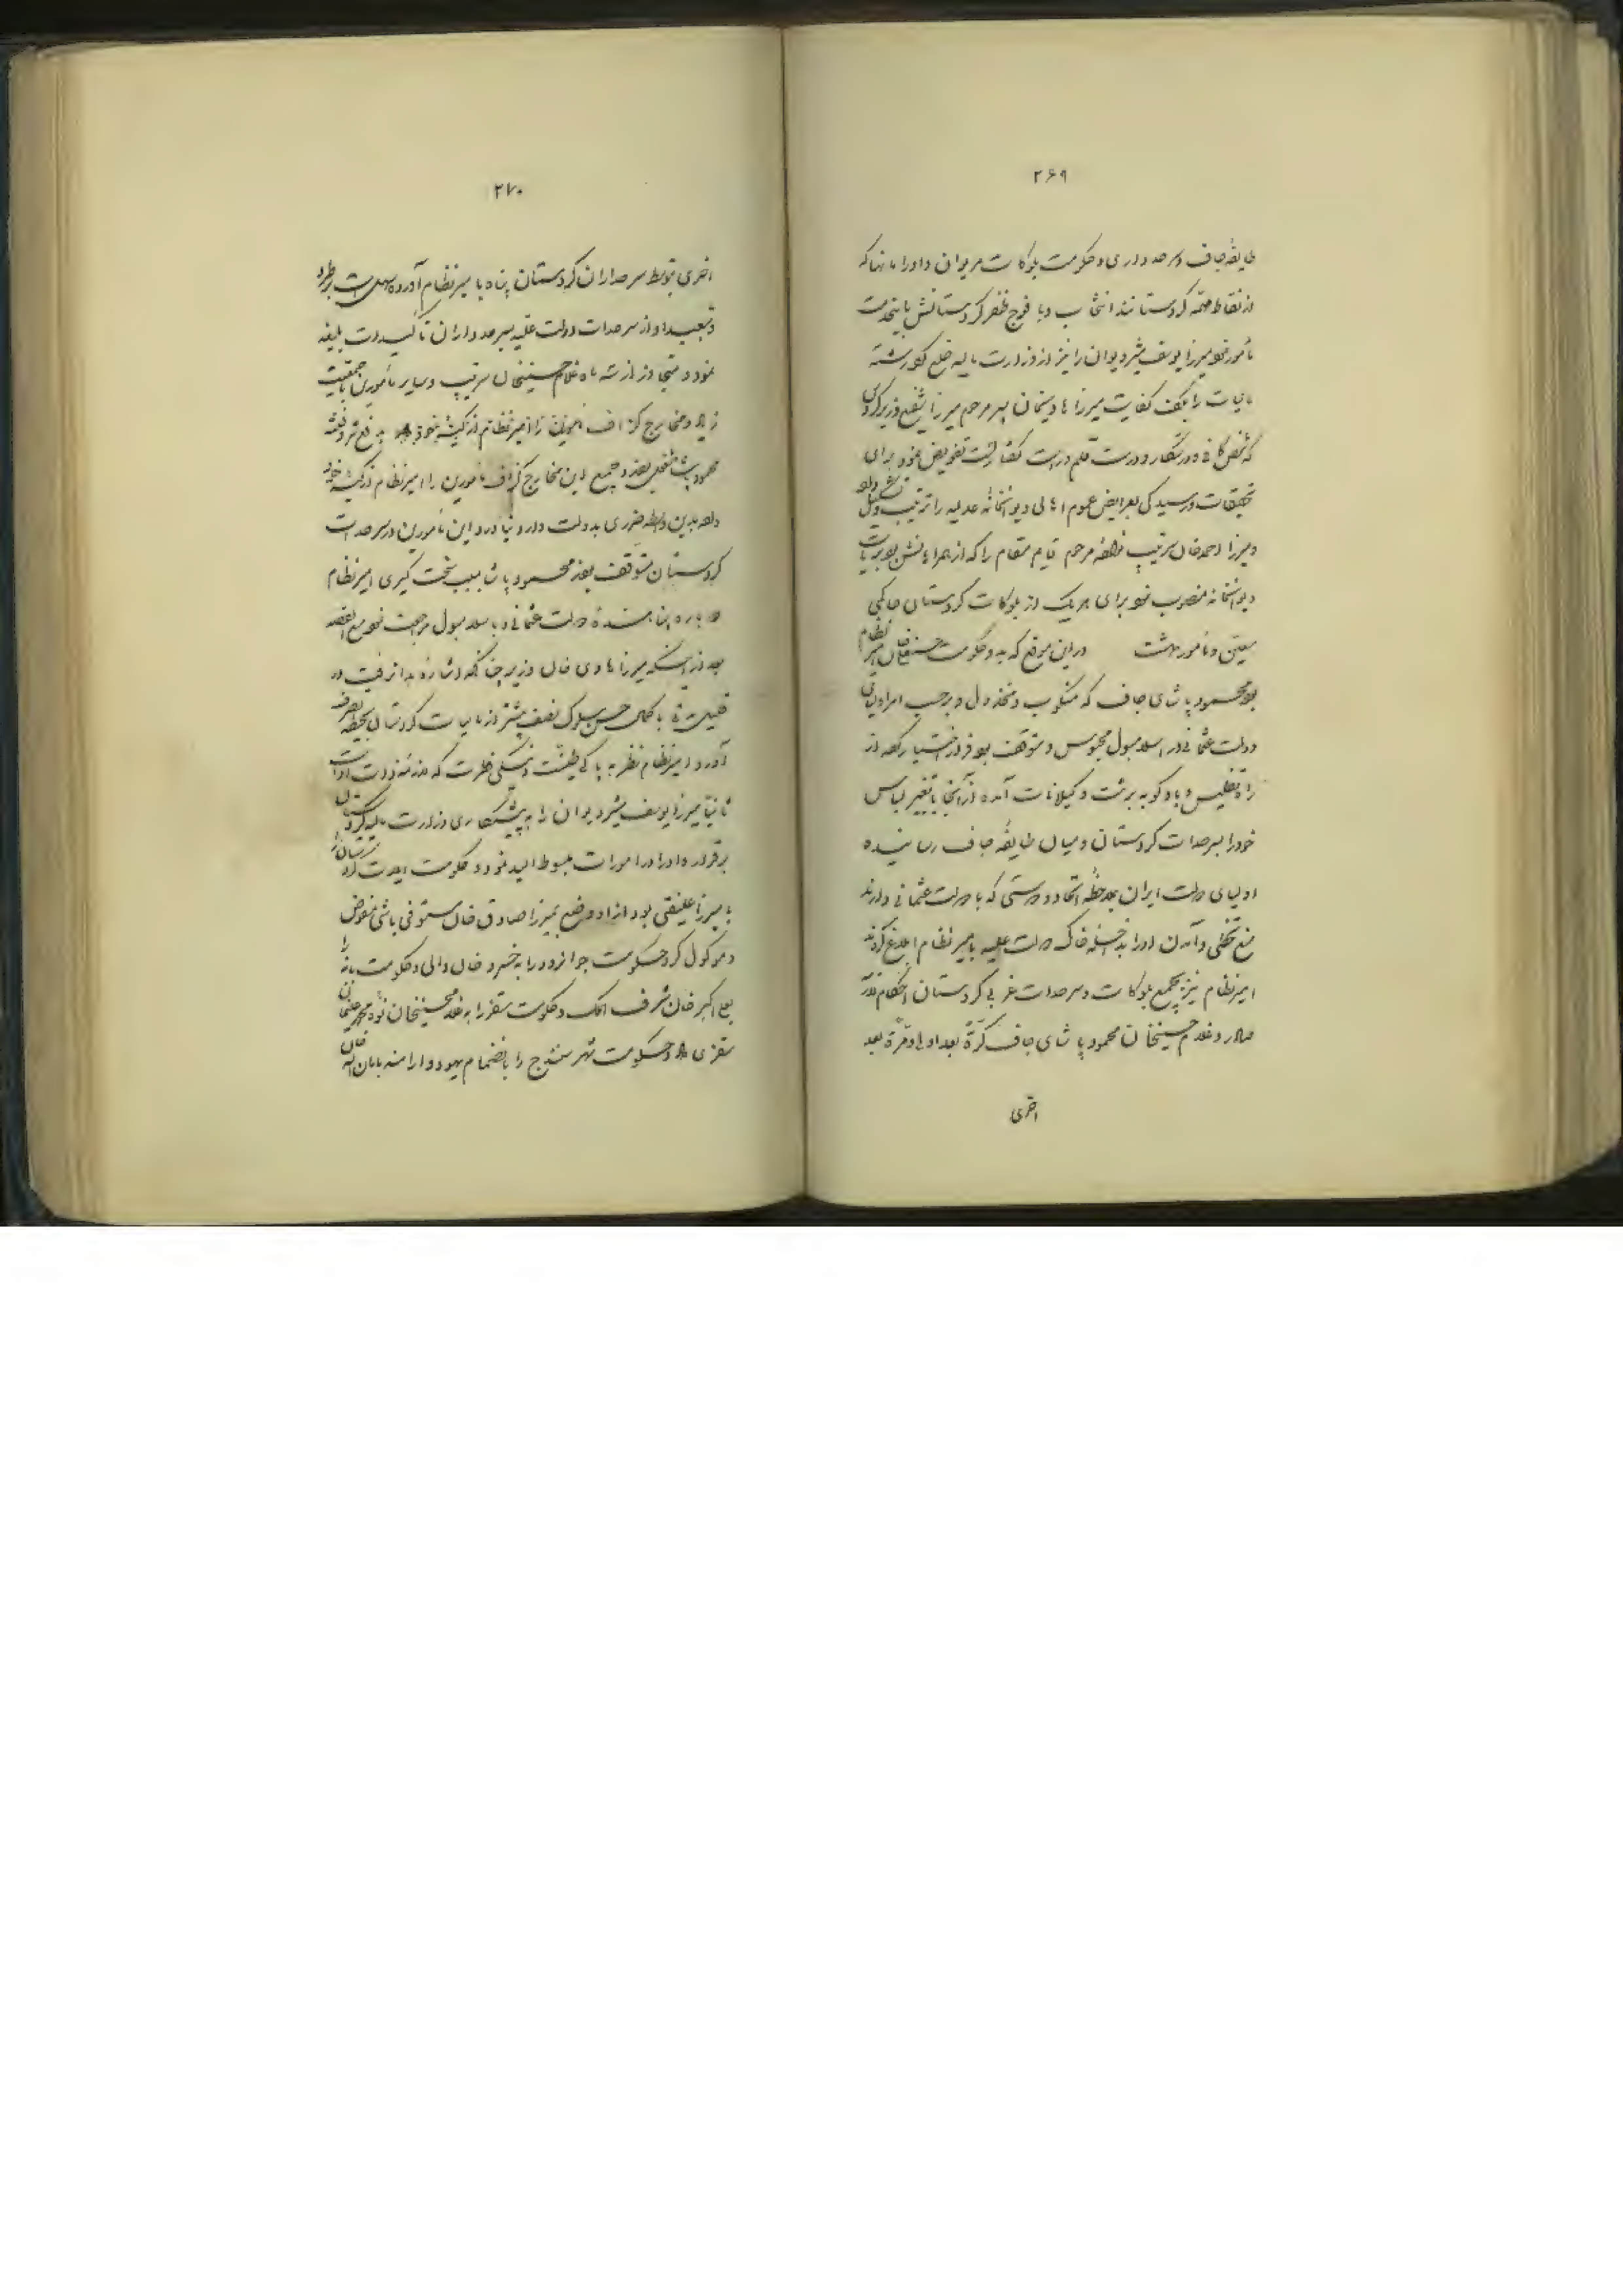 ۲۶۹
طایفه جاف و سرحدداری و حکومت بلوکات مریوان و اورامانها که
از نقاط مهمه کردستانند انتخاب و با فوج ظفر کردستانش باینخدمت
مأمور نمود میرزا یوسف مشیر دیوان را نیز از وزارت مالیه خلع نمود رشته
مالیات را بکف کفایت میرزا هادیخان پسر مرحوم میرزا شفیع وزیر کردستانی
که شخص کافی و درستکار و درست قلم درست کفتاریست تفویض نمود برای
تحقیقات و رسیدگی بعرایض عموم اهالی دیوانخانه عدلیه را ترتیب و تشکیل داد
و میرزا احمدخان سرتیپ نواده مرحوم قایم مقام را که از همراهانش بود بریاست
دیوانخانه منصوب نمود برای هر یک از بلوکات کردستان حاکمی
معین و مأمور داشت در این موقع که بدو حکومت حسنعلی خان امیر نظام
بود محمود پاشای جاف که منکوب و مخذول و برحسب امر اولیای
دولت عثمانی در اسلامبول محبوس و متوقف بود فرار اختیار کرده از
راه تفلیس و بادکوبه برشت و کیلانات آمده از آنجا با تغییر لباس
خود را بسرحدات کردستان و میان طایفه جاف رسانیده
اولیای دولت ایران بملاحظه اتحاد و دوستی که با دولت عثمانی دارند
منع تخطی و آمدن او را بداخله خاک دولت علیه بامیر نظام ابلاغ کردند
امیر نظام نیز بجمیع بلوکات و سرحدات غربی کردستان احکام
صادر و غلامحسینخان محمود پاشای جاف کرة بعد اولی و مرة بعد
اخری
۲۷۰
اخری بتوسط سرحداران کردستان پناه بامیر نظام آورده بطرد
و تبعید او از سرحدات دولت علیه بسرحدداران تأکیدات بلیغه
نمود و متجاوز از سه ماه غلامحسینخان سرتیپ و سایر مأمورین با جمعیت
زیاد و مخارج کزاف را امیر نظام از کیسه خود داد بدفع شر و فتنه
محمود پاشا مشغول بودند و جمیع این مخارج کزاف مأمورین را امیر نظام از کیسه خود
داده بدین واسطه ضرری بدولت وارد نیاورد و این مأمورین در سرحدات
کردستان متوقف بودند محمود پاشا بسبب سخت کیری امیر نظام
دوباره پناهنده دولت عثمانی و باسلامبول مراجعت نمود مع القصه
بعد از اینکه میرزا هادی خان وزیر چنانکه اشاره بدان رفت در
قلیل مدة با کمال حسن سلوک نصف بیشتر از مالیات کردستان بحیطه تصرف
آورد امیر نظام نظر به پاکی طینت و نیکی فطرت که
ثانیاً میرزا یوسف مشیر دیوان را به پیشکاری وزارت مالیه کردستان
برقرار و او را در امورات مبسوط الید نمود و حکومت
با میرزا علینقی بود از او وضع بمیرزا صادق خان مستوفی باشی مفوض
و موکول کرد حکومت جوانرود را به خسرو خان والی و حکومت بانه را
بعلی اکبر خان شرف الملک و حکومت سقز را به غلامحسینخان نوه محمد علیخان
سقزی داد و حکومت شهر سنندج را بانضمام یهود و ارامنه بامان اله خان